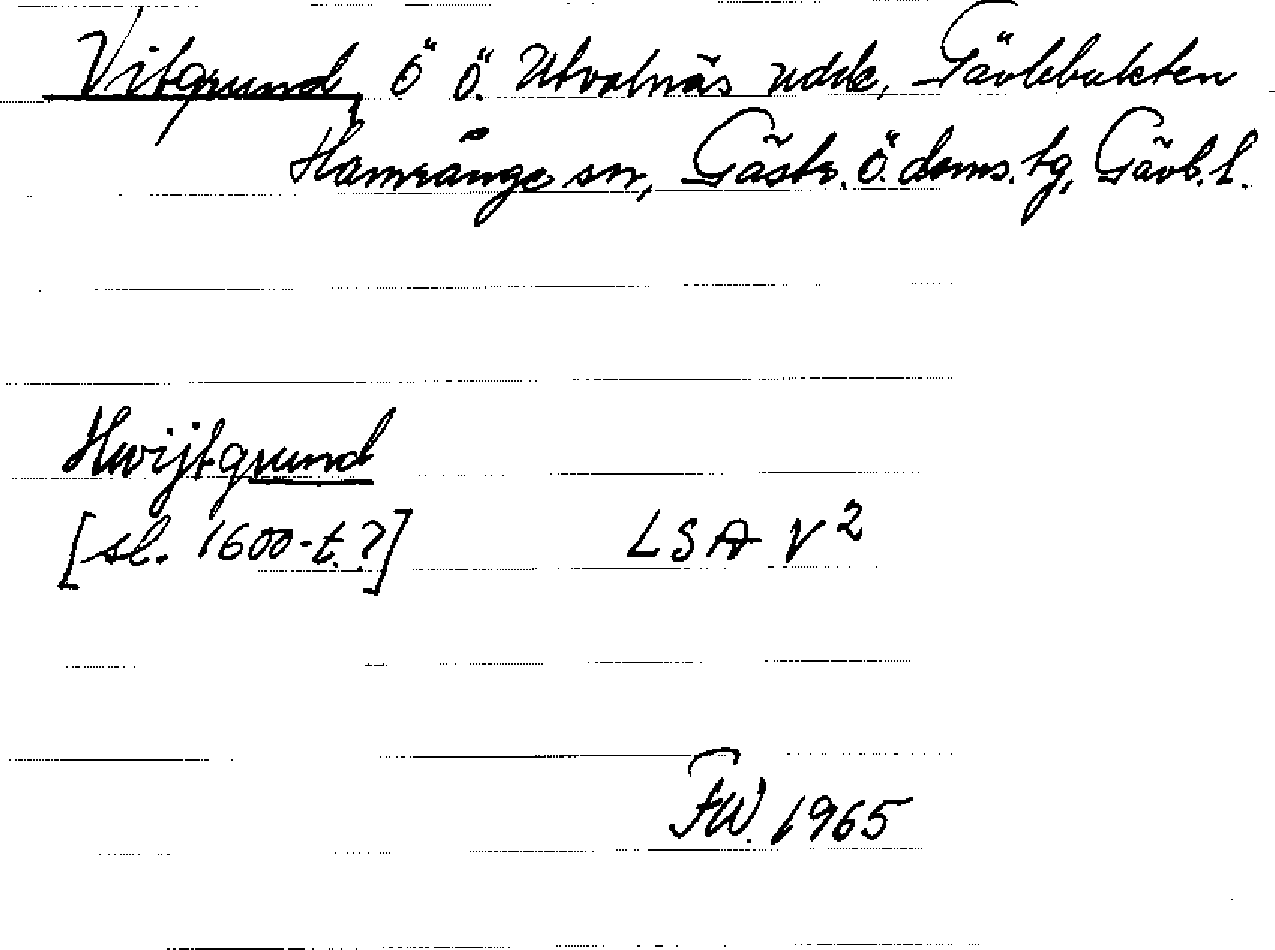 Vitgrund ö Ö. Utvalnäs udde, Gävlebukten
Hamrånge sn, Gästr. Ö. doms. tg, Gävb. l.
Hwijtgrund
[sl. 1600-t.?] LSA V²
FW. 1965